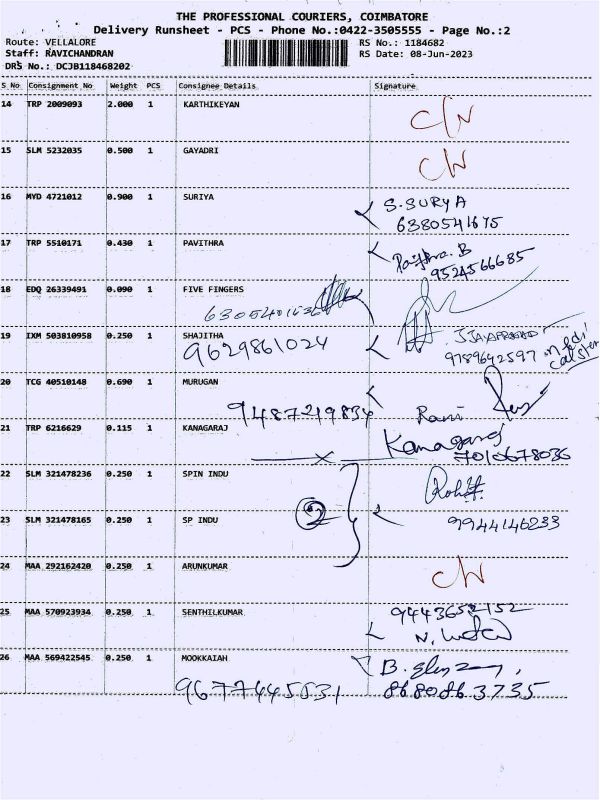 THE PROFESSIONAL COURIERS, COIMBATORE
Delivery Runsheet - PCS - Phone No.:0422-3505555 - Page No.:2
Route: VELLALORE
Staff: RAVICHANDRAN
DRS No.: DCJB118468202
RS No.: 1184682
RS Date: 08-Jun-2023
S No Consignment No Weight PCS Consignee Details Signature
14 TRP 2009093 2.000 1 KARTHIKEYAN
C/N
15 SLM 5232035 0.500 1 GAYADRI
C/N
16 MYD 4721012 0.900 1 SURIYA
S.SURYA
6380541675
17 TRP 5510171 0.430 1 PAVITHRA
Pavithra.B
9524566685
18 EDQ 26339491 0.090 1 FIVE FINGERS
19 IXM 503810958 0.250 1 SHAJITHA
9629861024
9789642597
20 TCG 40510148 0.690 1 MURUGAN
9487219834 Rani
21 TRP 6216629 0.115 1 KANAGARAJ
Kanagaraj
7010678036
22 SLM 321478236 0.250 1 SPIN INDU
Rohit
2
23 SLM 321478165 0.250 1 SP INDU
9944146233
24 MAA 292162420 0.250 1 ARUNKUMAR
C/N
25 MAA 570923934 0.250 1 SENTHILKUMAR
9443652152
26 MAA 569422545 0.250 1 MOOKKAIAH
8680863735